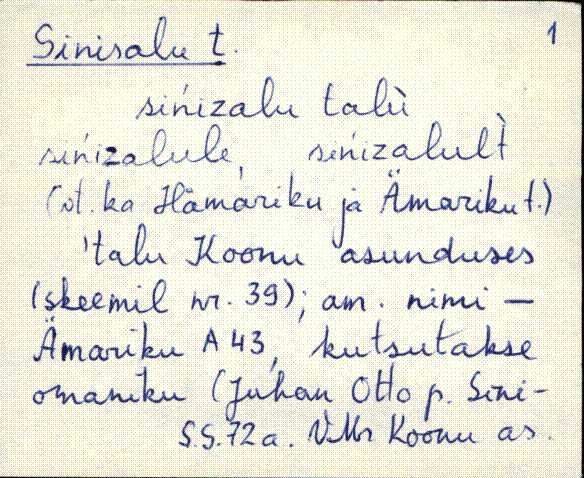 Sinisalu t. 1
sińizalu talù
sińizalule, sińizalult̀
(vt. ka Hämariku ja Ämariku t.)
'talu Koonu asunduses
(skeemil nr. 39); am. nimi —
Ämariku A 43, kutsutakse
omaniku (Juhan Otto p. Sini-
S.S. 72 a. VMr Koonu as.